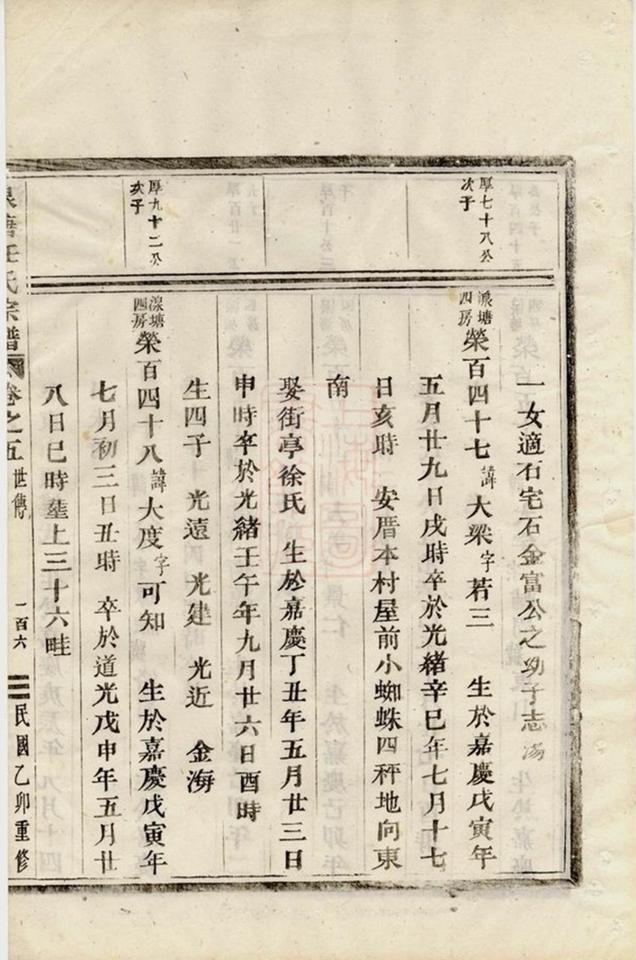 一女適石宅石金富公之幼子志
厚七十八公
次子
湶塘
四房
榮百四十七諱大梁字若三 生於嘉慶戊寅年
五月廿九日戌時卒於光緒辛巳年七月十七
日亥時 安厝本村屋前小蜘蛛四秤地向東
南
娶街亭徐氏 生於嘉慶丁丑年五月廿三日
申時卒於光緒壬午年九月廿六日酉時
生四子 光遠 光建 光近 金海
厚九十二公
次子
湶塘
四房
榮百四十八諱大度字可知 生於嘉慶戊寅年
七月初三日丑時 卒於道光戊申年五月廿
八日巳時塟上三十六畦
塘任氏宗譜 卷之五 世傳 一百六 民國乙卯重修